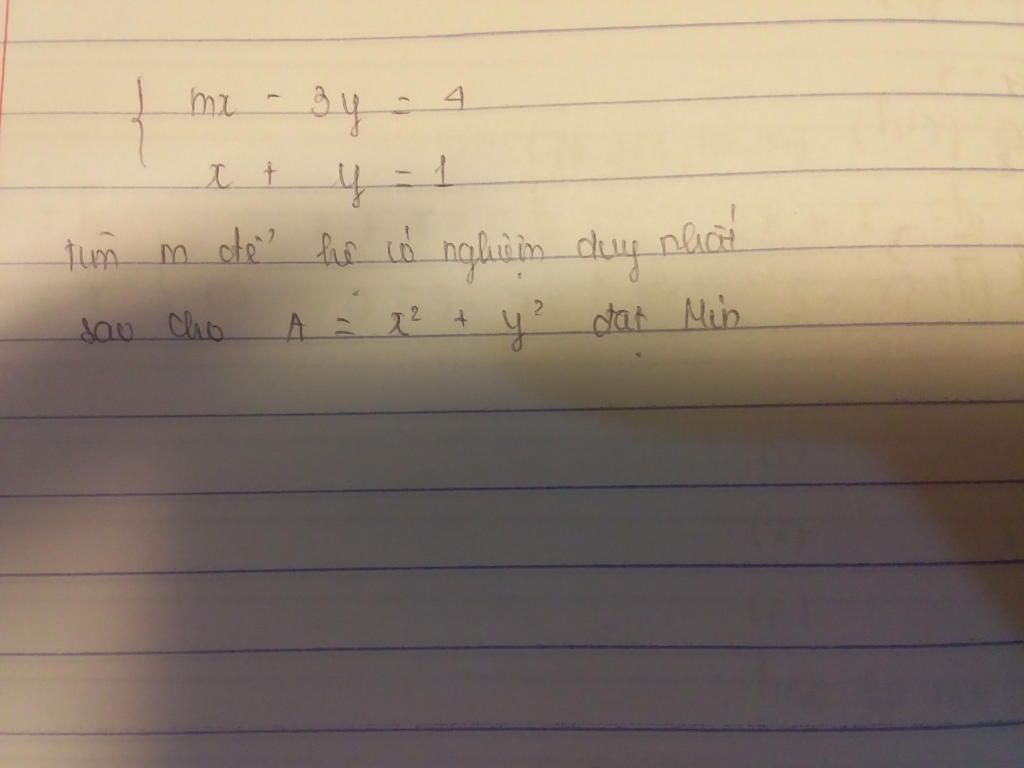 { mx - 3y = 4
x + y = 1
tìm m để hệ có nghiệm duy nhất
sao cho A = x² + y² đạt Min